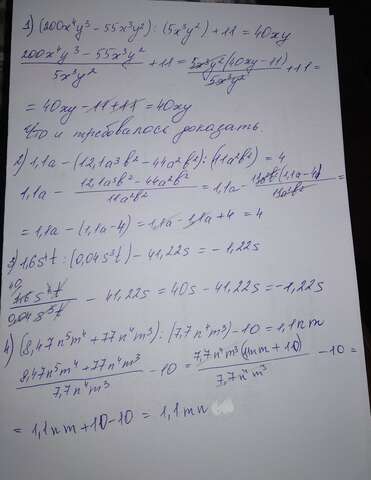 1) (200x⁴y³ − 55x³y²) : (5x³y²) + 11 = 40xy
200x⁴y³ − 55x³y² / 5x³y² + 11 = 5x³y²(40xy − 11) / 5x³y² + 11 =
= 40xy − 11 + 11 = 40xy
Что и требовалось доказать.
2) 1,1a − (12,1a³b² − 44a²b²) : (11a²b²) = 4
1,1a − 12,1a³b² − 44a²b² / 11a²b² = 1,1a − 11a²b²(1,1a − 4) / 11a²b² =
= 1,1a − (1,1a − 4) = 1,1a − 1,1a + 4 = 4
3) 1,6s⁴t : (0,04s³t) − 41,22s = −1,22s
40
1,6s⁴t / 0,04s³t − 41,22s = 40s − 41,22s = −1,22s
4) (8,47n⁵m⁴ + 77n⁴m³) : (7,7n⁴m³) − 10 = 1,1nm
8,47n⁵m⁴ + 77n⁴m³ / 7,7n⁴m³ − 10 = 7,7n⁴m³(1,1nm + 10) / 7,7n⁴m³ − 10 =
= 1,1nm + 10 − 10 = 1,1mn